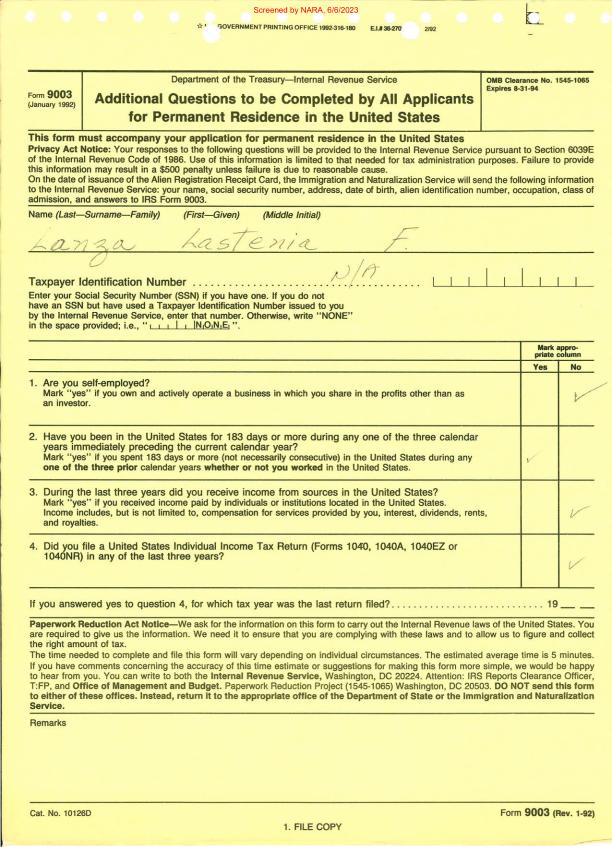 Screened by NARA, 6/6/2023
GOVERNMENT PRINTING OFFICE 1992-316-180 E.I.# 36-270 2/92
Form 9003
(January 1992)
Department of the Treasury—Internal Revenue Service
Additional Questions to be Completed by All Applicants
for Permanent Residence in the United States
OMB Clearance No. 1545-1065
Expires 8-31-94
This form must accompany your application for permanent residence in the United States
Privacy Act Notice: Your responses to the following questions will be provided to the Internal Revenue Service pursuant to Section 6039E
of the Internal Revenue Code of 1986. Use of this information is limited to that needed for tax administration purposes. Failure to provide
this information may result in a $500 penalty unless failure is due to reasonable cause.
On the date of issuance of the Alien Registration Receipt Card, the Immigration and Naturalization Service will send the following information
to the Internal Revenue Service: your name, social security number, address, date of birth, alien identification number, occupation, class of
admission, and answers to IRS Form 9003.
Name (Last—Surname—Family) (First—Given) (Middle Initial)
Lanza Lastenia F.
Taxpayer Identification Number N/A
Enter your Social Security Number (SSN) if you have one. If you do not
have an SSN but have used a Taxpayer Identification Number issued to you
by the Internal Revenue Service, enter that number. Otherwise, write "NONE"
in the space provided; i.e., " NONE ".
Mark appro-
priate column
Yes No
1. Are you self-employed?
Mark "yes" if you own and actively operate a business in which you share in the profits other than as
an investor.
2. Have you been in the United States for 183 days or more during any one of the three calendar
years immediately preceding the current calendar year?
Mark "yes" if you spent 183 days or more (not necessarily consecutive) in the United States during any
one of the three prior calendar years whether or not you worked in the United States.
3. During the last three years did you receive income from sources in the United States?
Mark "yes" if you received income paid by individuals or institutions located in the United States.
Income includes, but is not limited to, compensation for services provided by you, interest, dividends, rents,
and royalties.
4. Did you file a United States Individual Income Tax Return (Forms 1040, 1040A, 1040EZ or
1040NR) in any of the last three years?
If you answered yes to question 4, for which tax year was the last return filed? 19 __ __
Paperwork Reduction Act Notice—We ask for the information on this form to carry out the Internal Revenue laws of the United States. You
are required to give us the information. We need it to ensure that you are complying with these laws and to allow us to figure and collect
the right amount of tax.
The time needed to complete and file this form will vary depending on individual circumstances. The estimated average time is 5 minutes.
If you have comments concerning the accuracy of this time estimate or suggestions for making this form more simple, we would be happy
to hear from you. You can write to both the Internal Revenue Service, Washington, DC 20224. Attention: IRS Reports Clearance Officer,
T:FP, and Office of Management and Budget. Paperwork Reduction Project (1545-1065) Washington, DC 20503. DO NOT send this form
to either of these offices. Instead, return it to the appropriate office of the Department of State or the Immigration and Naturalization
Service.
Remarks
Cat. No. 10126D
Form 9003 (Rev. 1-92)
1. FILE COPY